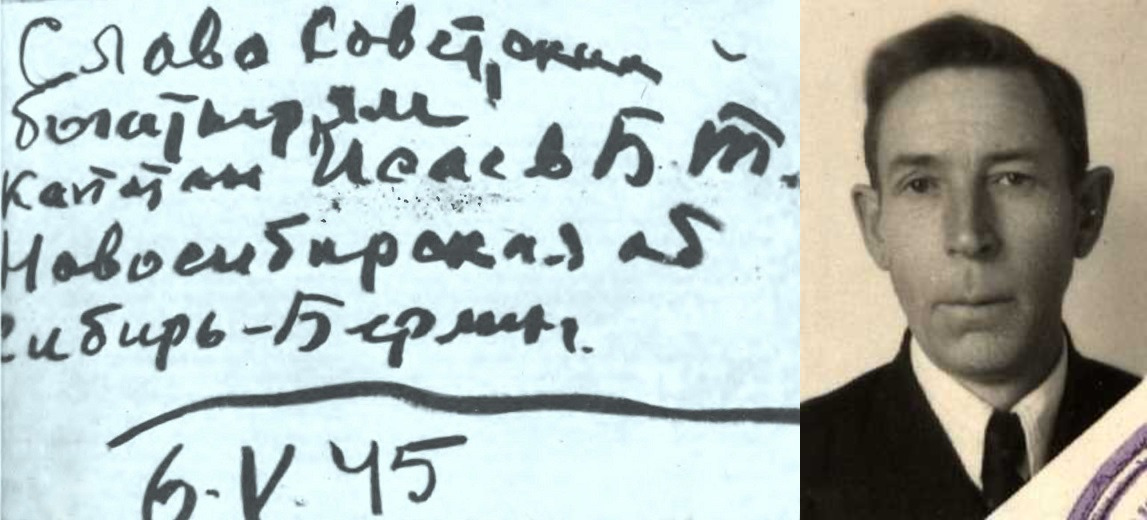 Слава Советским
богатырям
капитан Исаев Б. Т.
Новосибирская об
Сибирь-Берлин.
6.V.45